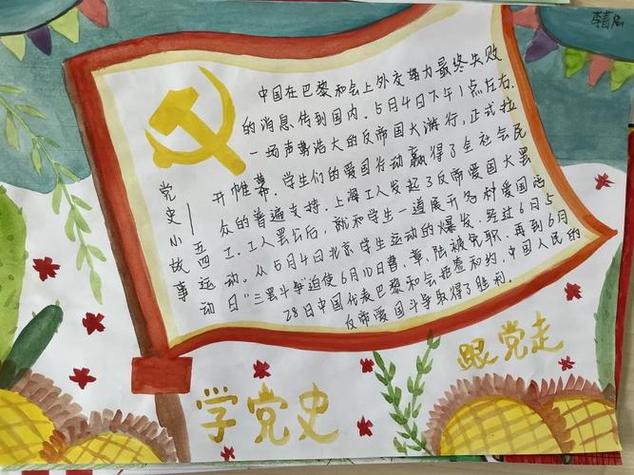 中国在巴黎和会上外交努力最终失败
的消息传到国内。5月4日下午1点左右,
一场声势浩大的反帝国大游行,正式拉
开帷幕。学生们的爱国行动赢得了全社会民
众的普遍支持。上海工人发起了反帝爱国大罢
工。工人罢公后,就和学生一道展开各种爱国活
动。从5月4日北京学生运动的爆发,经过6月5
日"三罢斗争"迫使6月10日曹、章、陆被免职,再到6月
28日中国代表巴黎和会拒签和约,中国人民的
反帝爱国斗争取得了胜利。
党史小故事
——五四运动
学党史
跟党走